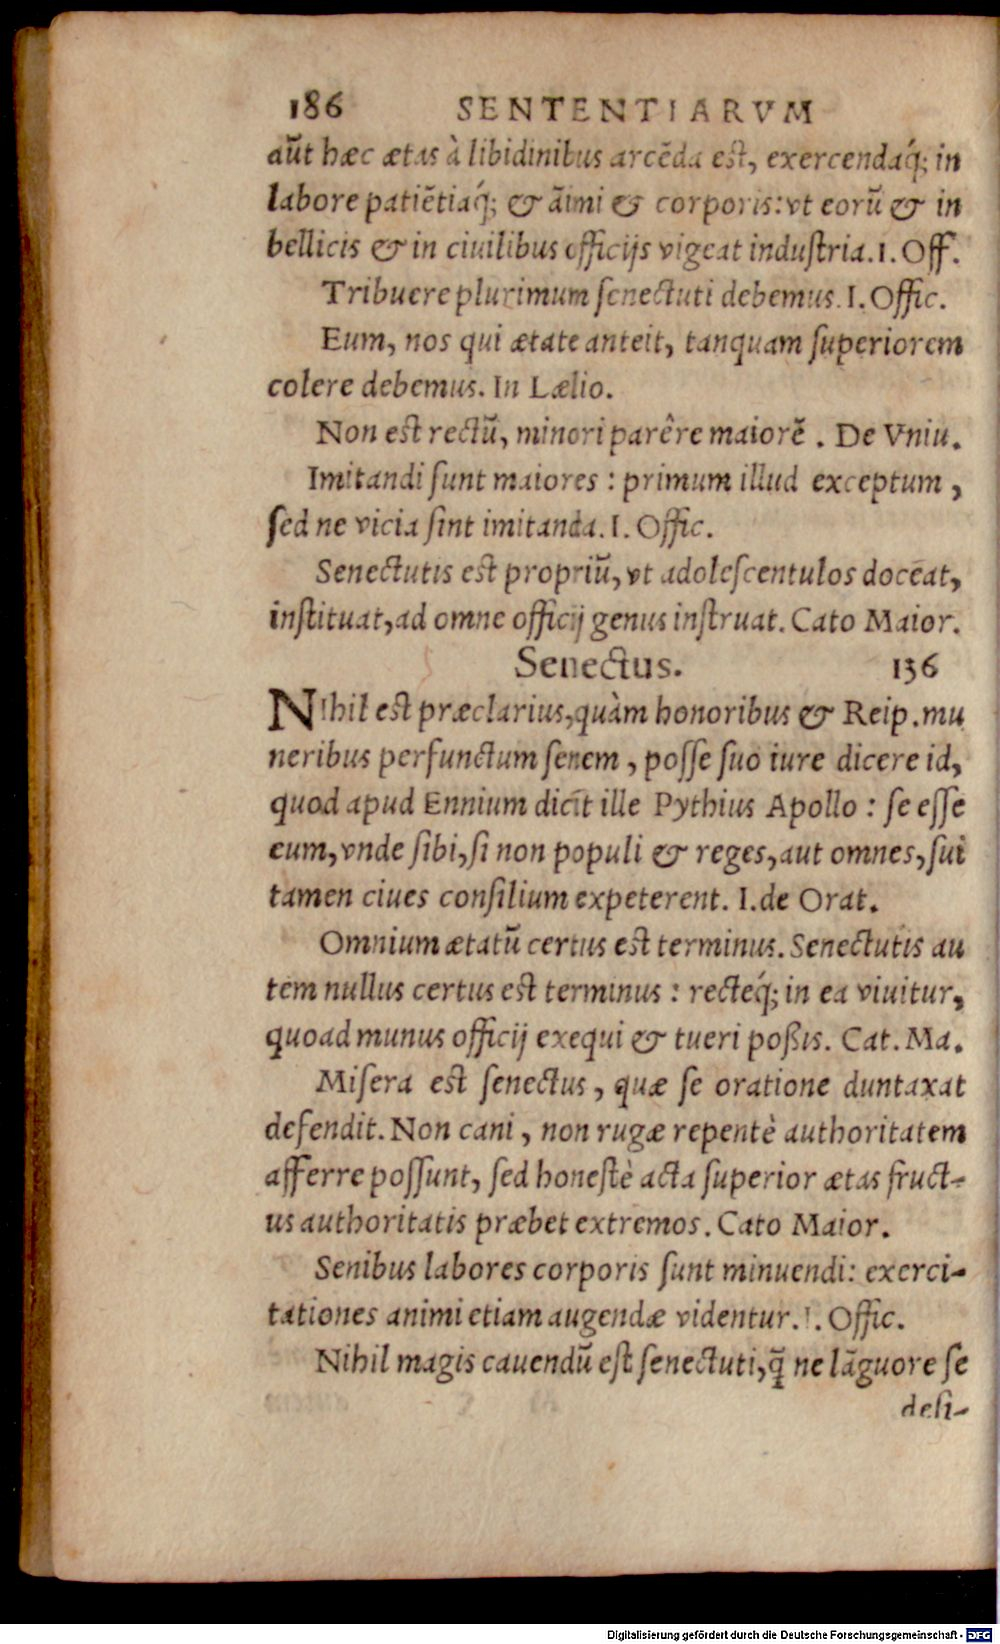 186 SENTENTIARVM
aūt hæc ætas à libidinibus arcēda est, exercendaq́; in
labore patiētiaq́; & āimi & corporis: vt eorū & in
bellicis & in ciuilibus officijs vigeat industria. I. Off.
Tribuere plurimum senectuti debemus. I. Offic.
Eum, nos qui ætate anteit, tanquam superiorem
colere debemus. In Lælio.
Non est rectū, minori parêre maiorē. De Vniu.
Imitandi sunt maiores: primum illud exceptum,
sed ne vicia sint imitanda. I. Offic.
Senectutis est propriū, vt adolescentulos doceat,
instituat, ad omne officij genus instruat. Cato Maior.
Senectus. 136
Nihil est præclarius, quàm honoribus & Reip. mu
neribus perfunctum senem, posse suo iure dicere id,
quod apud Ennium dicit ille Pythius Apollo: se esse
eum, vnde sibi, si non populi & reges, aut omnes, sui
tamen ciues consilium expeterent. I. de Orat.
Omnium ætatū certus est terminus. Senectutis au
tem nullus certus est terminus: recteq́; in ea viuitur,
quoad munus officij exequi & tueri poßis. Cat. Ma.
Misera est senectus, quæ se oratione duntaxat
defendit. Non cani, non rugæ repentè authoritatem
afferre possunt, sed honestè acta superior ætas fruct-
us authoritatis præbet extremos. Cato Maior.
Senibus labores corporis sunt minuendi: exerci-
tationes animi etiam augendæ videntur. I. Offic.
Nihil magis cauendū est senectuti, q̄ ne lāguore se
desi-
Digitalisierung gefördert durch die Deutsche Forschungsgemeinschaft - DFG